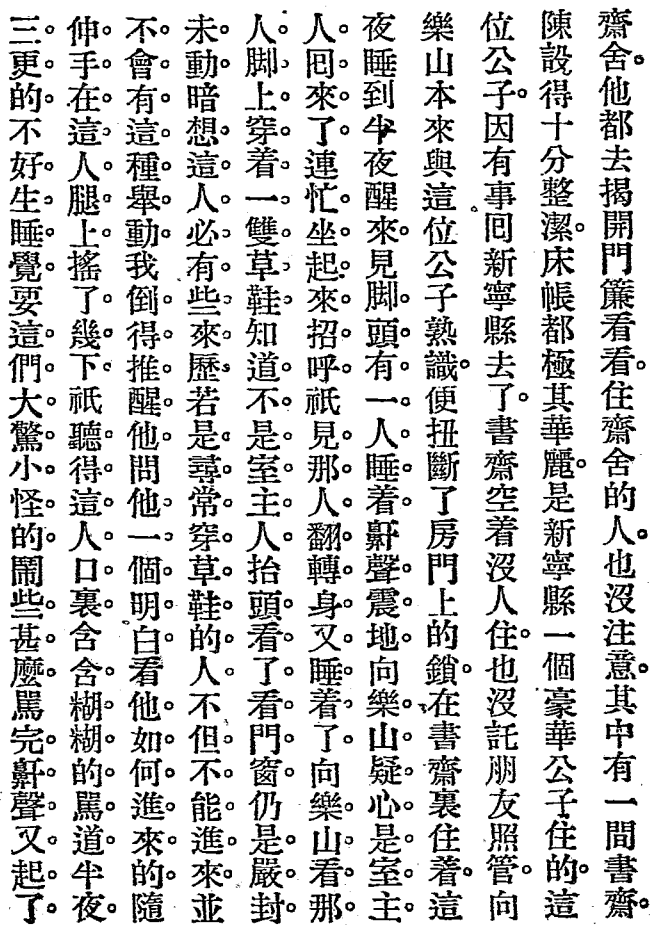 齋舍。他都去揭開門簾看看。住齋舍的人。也沒注意。其中有一間書齋。
陳設得十分整潔。床帳都極其華麗。是新寧縣一個豪華公子住的。這
位公子。因有事囘新寧縣去了。書齋空着沒人住。也沒託朋友照管。向
樂山本來與這位公子熟識。便扭斷了房門上的鎖。在書齋裏住着。這
夜睡到半夜醒來。見脚頭有一人睡着。鼾聲震地。向樂山疑心是室主
人。囘來了。連忙坐起來招呼。祇見那人翻轉身又睡着了。向樂山看那
人。脚上穿着一雙草鞋。知道不是室主人。抬頭看了看門窗。仍是嚴封
未動。暗想這人必有些來歷。若是尋常穿草鞋的人。不但不能進來。並
不會有這種舉動。我倒得推醒他。問他一個明白。看他如何進來的。隨
伸手在這人腿上搖了幾下。祇聽得這人口裏含含糊糊的罵道。半夜
三更的。不好生睡覺。要這們大驚小怪的鬧些甚麼。罵完鼾聲又起了。